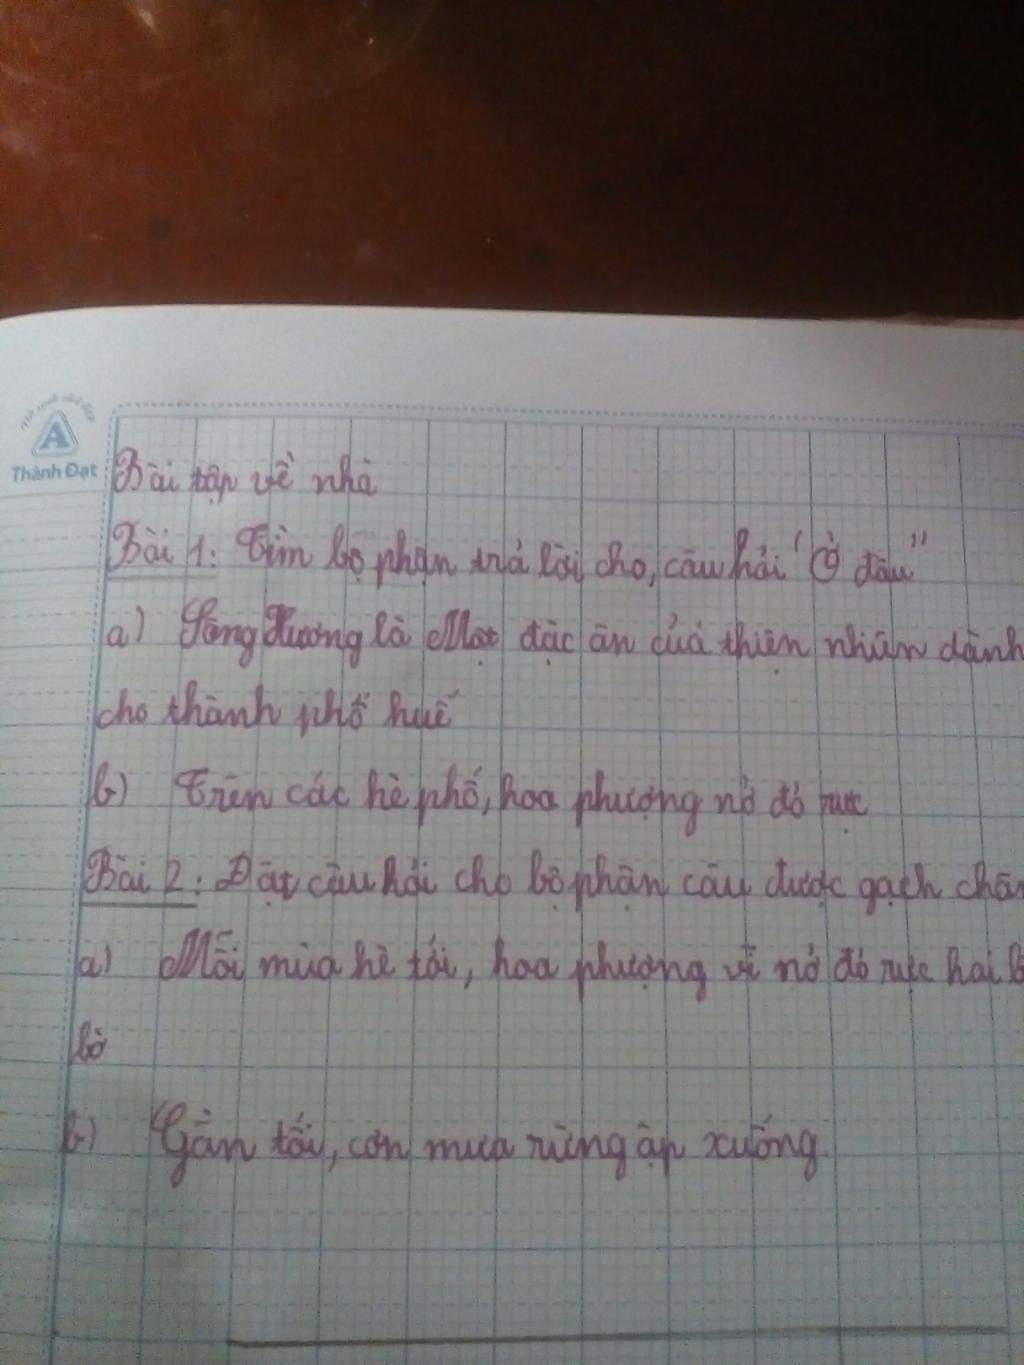 Vở sạch chữ đẹp
A
Thành Đạt
Bài tập về nhà
Bài 1: Tìm bộ phận trả lời cho, câu hỏi "Ở đâu"
a) Sông Hương là Một đặc ân của thiên nhiên dành
cho thành phố huế
b) Trên các hè phố, hoa phượng nở đỏ rực
Bài 2: Đặt câu hỏi cho bộ phận câu được gạch chân
a) Mỗi mùa hè tới, hoa phượng vĩ nở đỏ rực hai b
bờ
b) Gần tối, cơn mưa rừng ập xuống